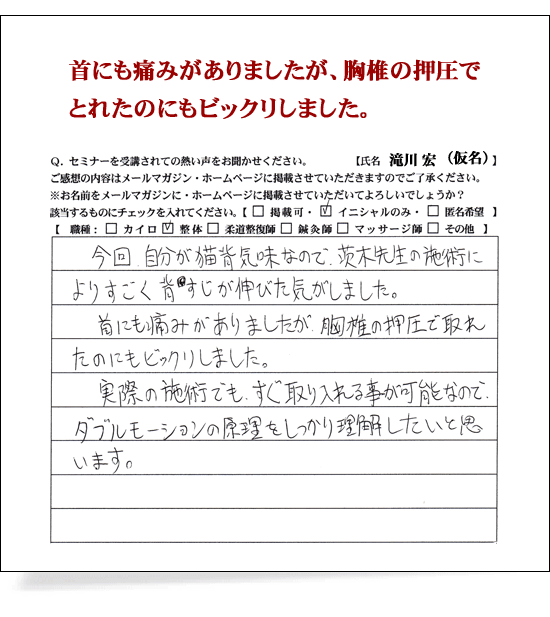 首にも痛みがありましたが、胸椎の押圧で
とれたのにもビックリしました。
Q. セミナーを受講されての熱い声をお聞かせください。 【氏名 滝川 宏（仮名）】
ご感想の内容はメールマガジン・ホームページに掲載させていただきますのでご了承ください。
※お名前をメールマガジンに・ホームページに掲載させていただいてよろしいでしょうか？
該当するものにチェックを入れてください。【 □ 掲載可・ ☑ イニシャルのみ・ □ 匿名希望 】
【 職種： □ カイロ ☑ 整体 □ 柔道整復師 □ 鍼灸師 □ マッサージ師 □ その他 】
今回、自分が猫背気味なので、茨木先生の施術に
よりすごく背すじが伸びた気がしました。
首にも痛みがありましたが、胸椎の押圧で取れ
たのにもビックリしました。
実際の施術でも、すぐ取り入れる事が可能なので、
ダブルモーションの原理をしっかり理解したいと思
います。